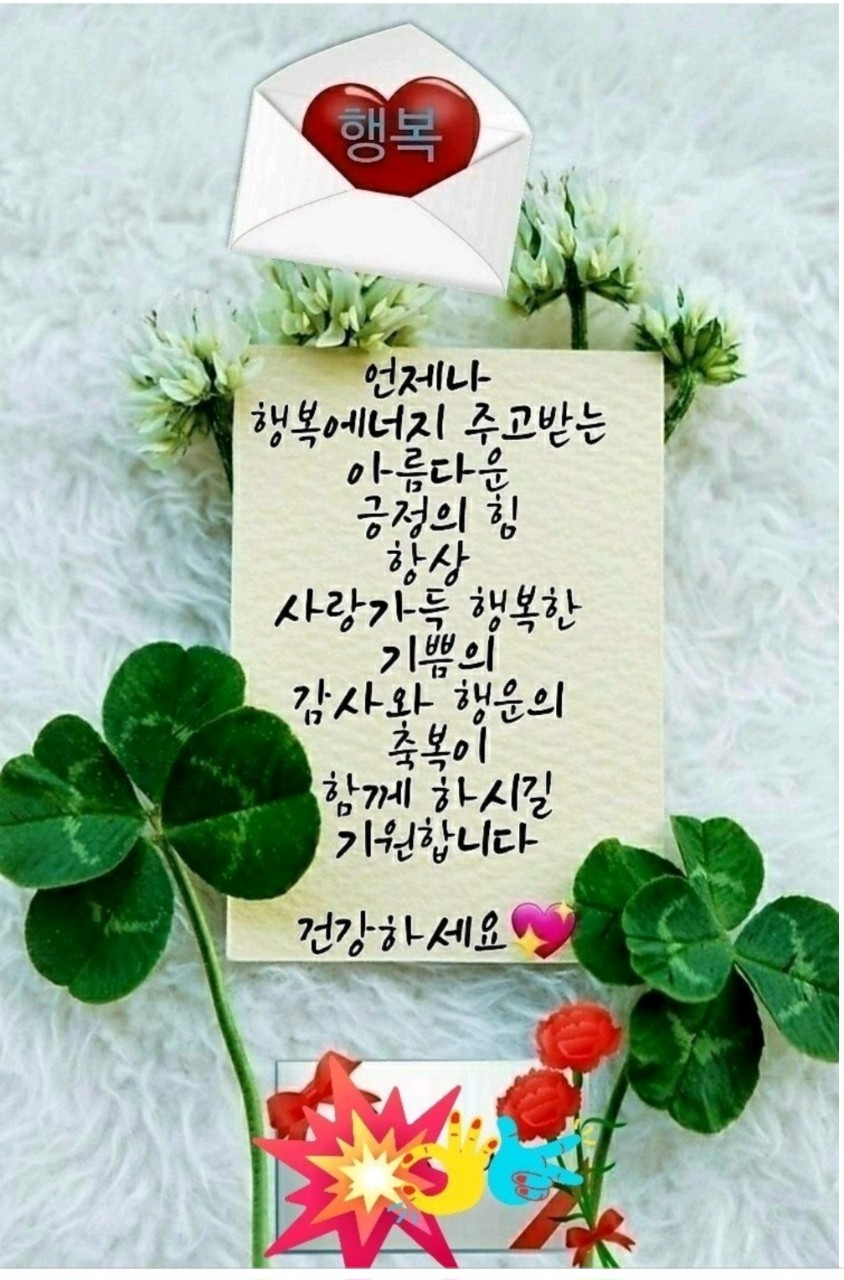 행복
언제나
행복에너지 주고받는
아름다운
긍정의 힘
항상
사랑가득 행복한
기쁨의
감사와 행운의
축복이
함께 하시길
기원합니다
건강하세요